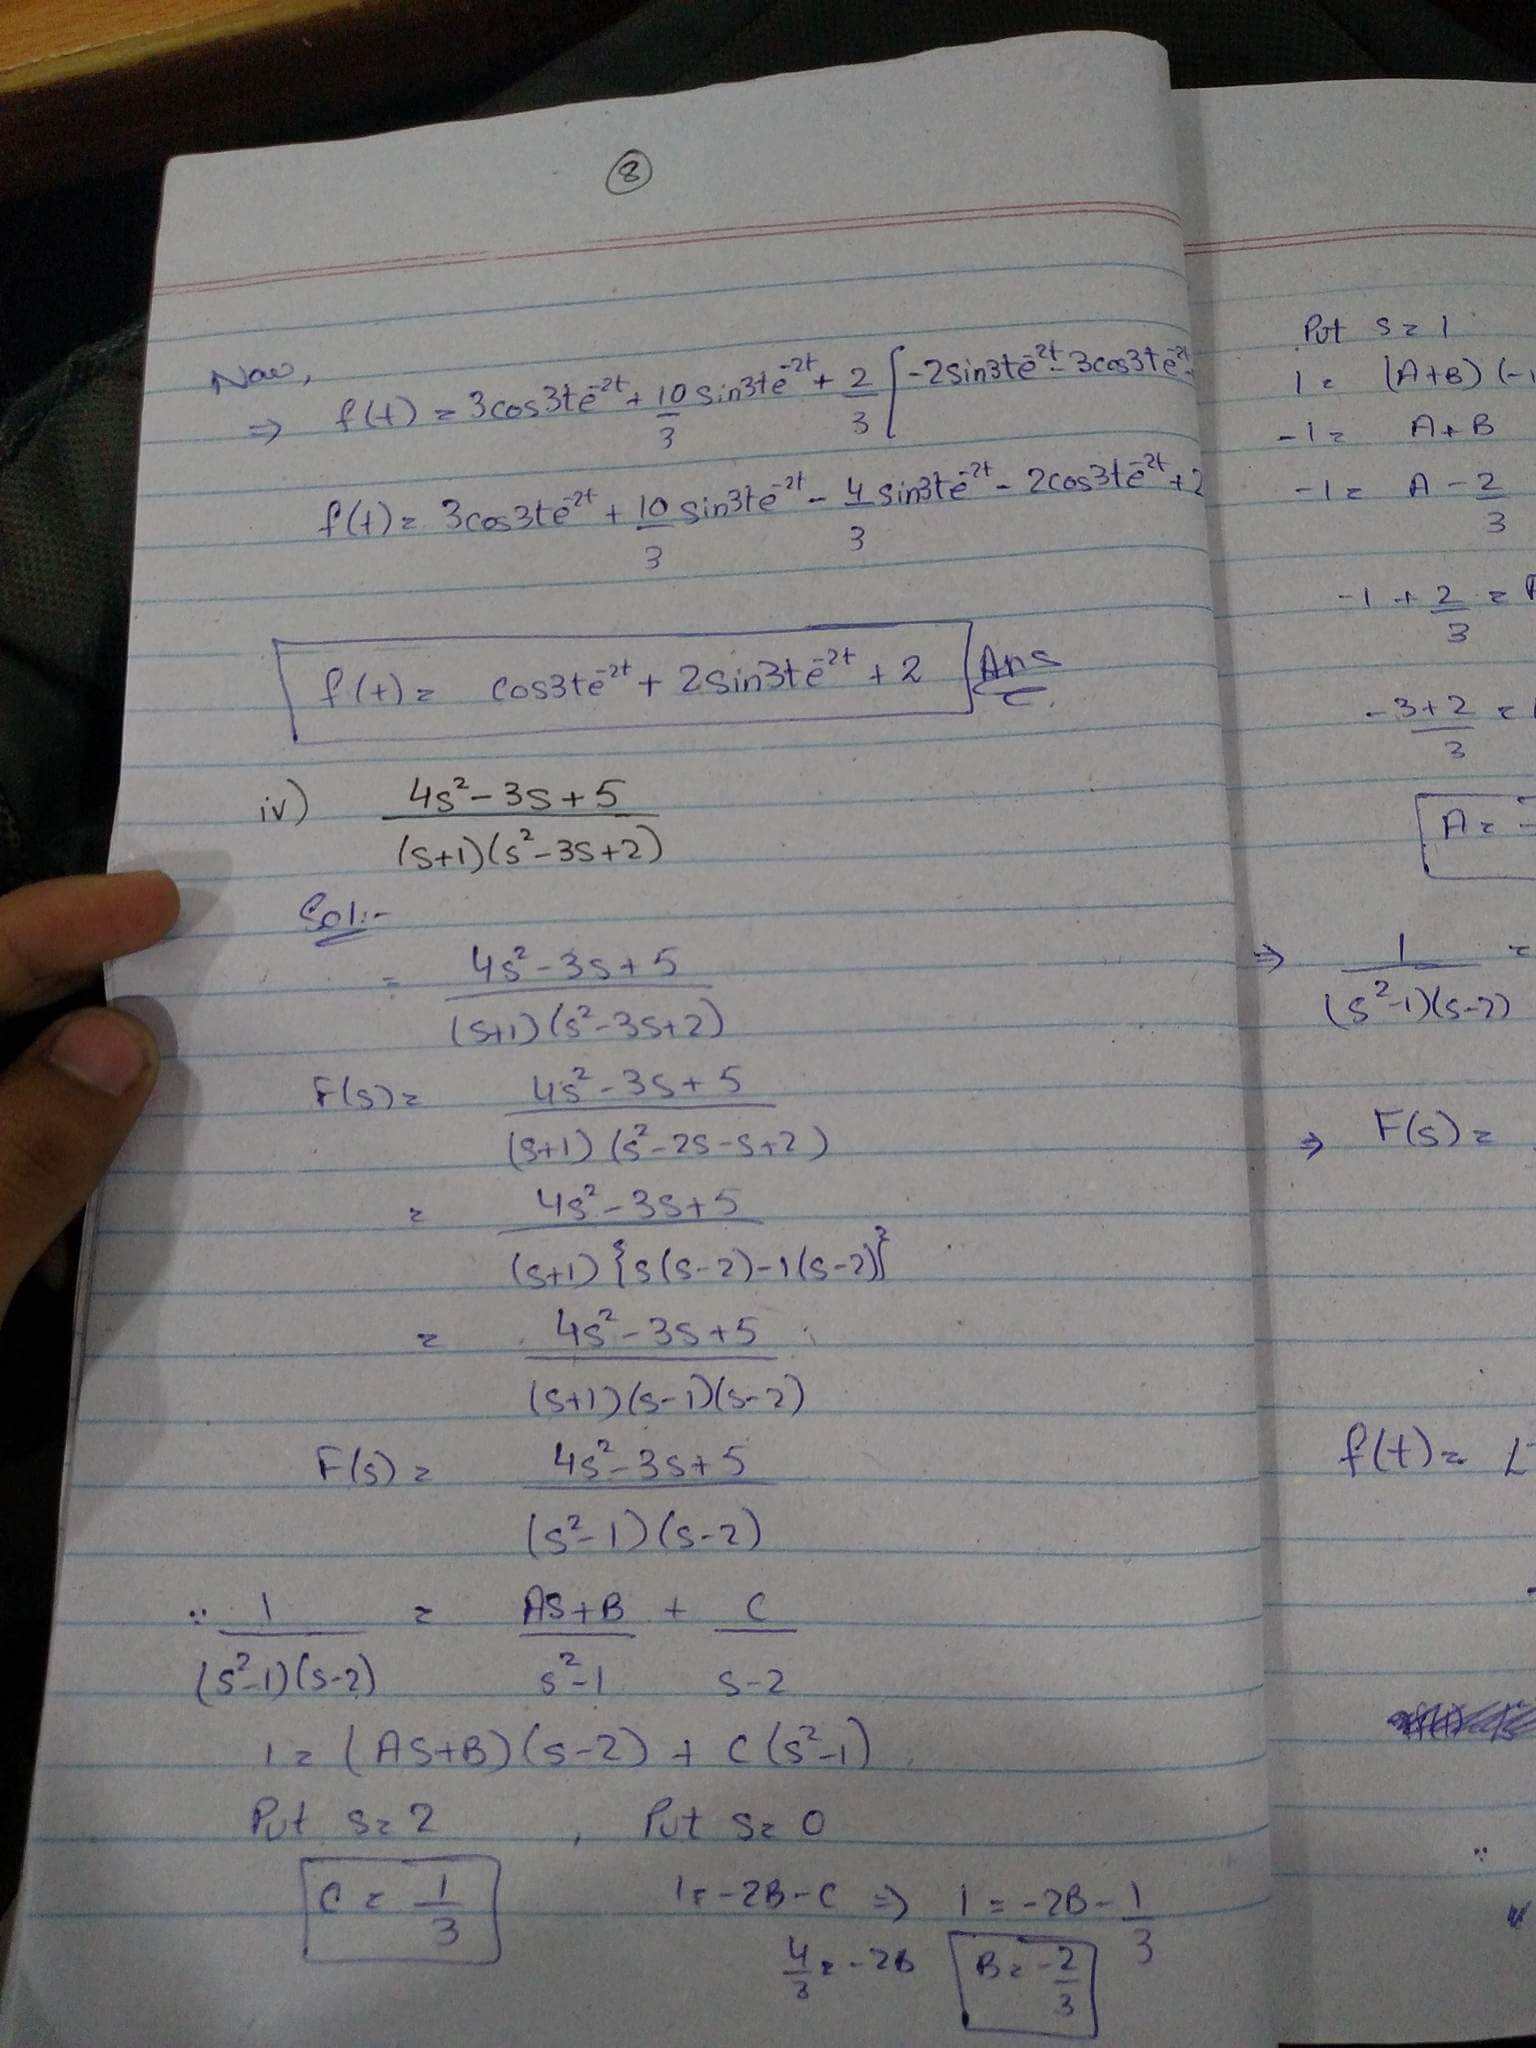 8
Now,
⇒ f(t) = 3cos3te^-2t + 10/3 sin3te^-2t + 2/3 [-2sin3te^-2t - 3cos3te^-2t
f(t) = 3cos3te^-2t + 10/3 sin3te^-2t - 4/3 sin3te^-2t - 2cos3te^-2t + 2
f(t) = cos3te^-2t + 2sin3te^-2t + 2 Ans
iv) 4s² - 3s + 5 / (s+1)(s² - 3s + 2)
Sol:-
= 4s² - 3s + 5 / (s+1)(s² - 3s + 2)
F(s) = 4s² - 3s + 5 / (s+1)(s² - 2s - s + 2)
= 4s² - 3s + 5 / (s+1){s(s-2) - 1(s-2)}
= 4s² - 3s + 5 / (s+1)(s-1)(s-2)
F(s) = 4s² - 3s + 5 / (s² - 1)(s-2)
∵ 1 / (s² - 1)(s-2) = As+B / s² - 1 + C / s-2
1 = (As+B)(s-2) + C(s² - 1)
Put s = 2 , Put s = 0
C = 1/3 1 = -2B - C ⇒ 1 = -2B - 1/3
4/3 = -2B B = -2/3
Put s = 1
1 = (A+B)(-1
-1 = A+B
-1 = A - 2/3
-1 + 2/3 =
-3+2/3 =
A = -
⇒ 1 / (s² - 1)(s-2) =
⇒ F(s) =
f(t) = L
∵